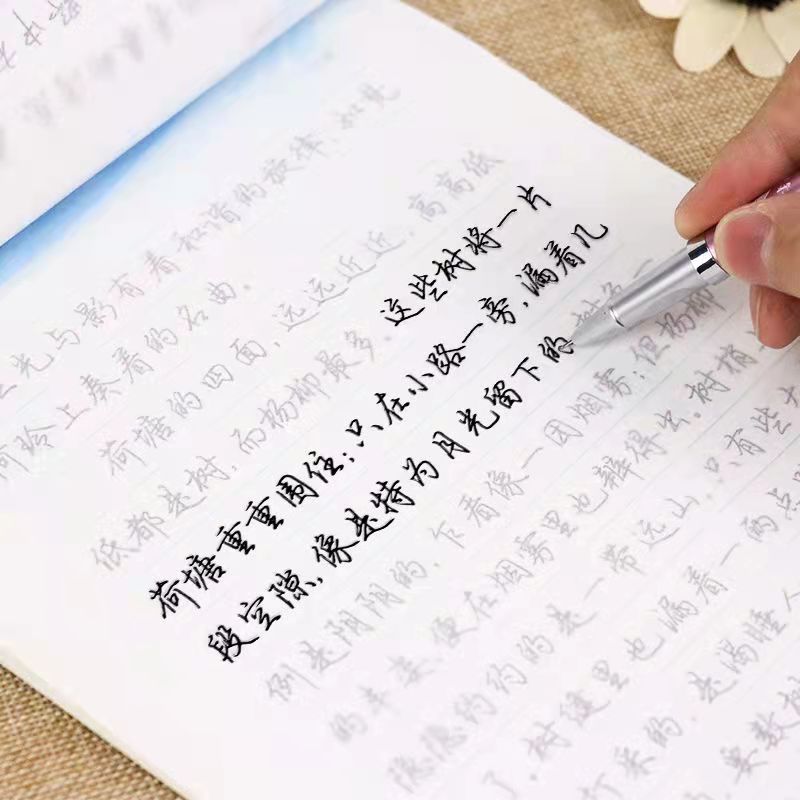 光与影有着和谐的旋律,如梵
玲上奏着的名曲。
荷塘的四面,远远近近,高高低
低都是树,而杨柳最多。这些树将一片
荷塘重重围住;只在小路一旁,漏着几
段空隙,像是特为月光留下的 树色一
例是阴阴的,乍看像一团烟雾;但杨柳
的丰姿,便在烟雾里也辨得出。树梢
隐隐约约的是一带远山,只有些大
了。树缝里也漏着一两点
打采的,是渴睡人
要数树